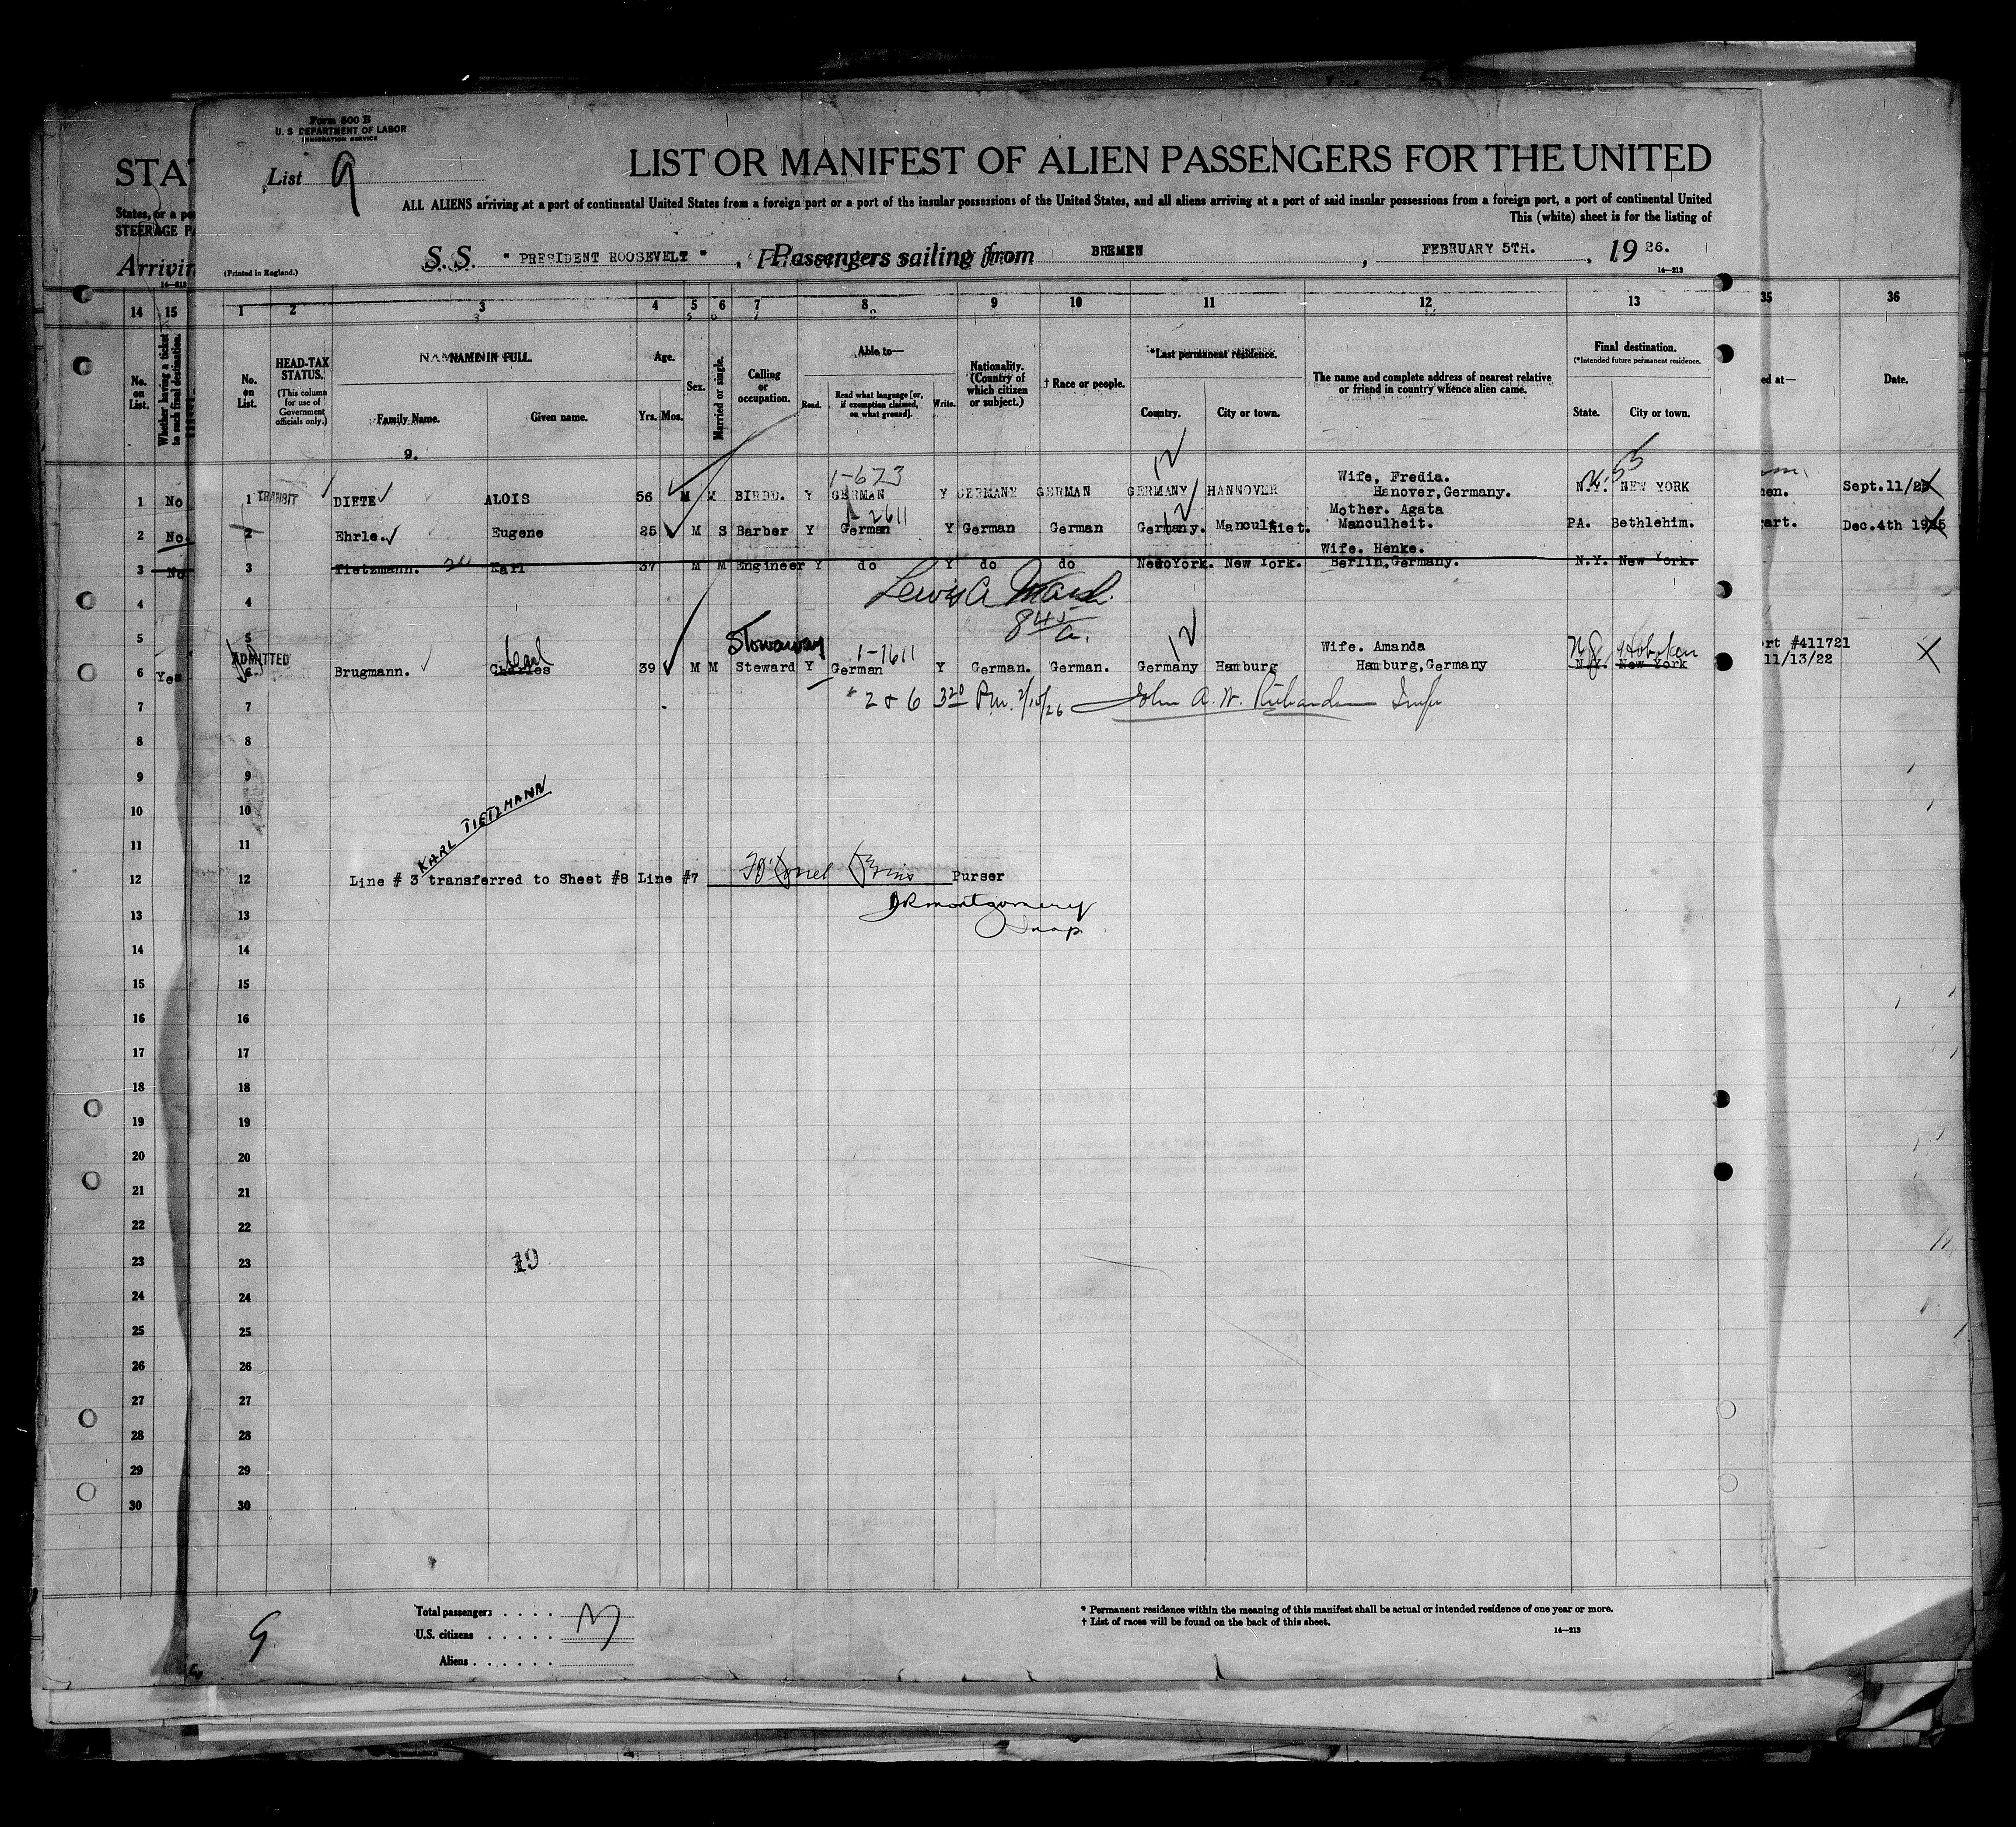 Form 500 B
U. S. DEPARTMENT OF LABOR
IMMIGRATION SERVICE
STA
List 9
LIST OR MANIFEST OF ALIEN PASSENGERS FOR THE UNITED
States, or a po
STEERAGE PA
ALL ALIENS arriving at a port of continental United States from a foreign port or a port of the insular possessions of the United States, and all aliens arriving at a port of said insular possessions from a foreign port, a port of continental United
This (white) sheet is for the listing of
Arrivin
(Printed in England.)
S. S. " PRESIDENT ROOSEVELT " , Passengers sailing from BREMEN , FEBRUARY 5TH. , 19 26.
14—213 14—213
14 15 1 2 3 4 5 6 7 8 9 10 11 12 13 35 36
No. on List.
Whether having a ticket to such final destination.
No. on List.
HEAD-TAX STATUS.
(This column for use of Government officials only.)
NAME IN FULL.
Family Name. Given name.
Age.
Yrs. Mos.
Sex.
Married or single.
Calling or occupation.
Able to—
Read. Read what language [or, if exemption claimed, on what ground]. Write.
Nationality. (Country of which citizen or subject.)
† Race or people.
*Last permanent residence.
Country. City or town.
The name and complete address of nearest relative or friend in country whence alien came.
Final destination.
(*Intended future permanent residence.
State. City or town.
ed at—
Date.
9.
1-673 12
Wife, Fredia.
1 No 1 TRANSIT DIETE ALOIS 56 M M BIRDD. Y GERMAN Y GERMANY GERMAN GERMANY HANNOVER Hanover, Germany. N.Y. NEW YORK Sept.11/25
1-2611 12
Mother. Agata
2 No. 2 Ehrle. Eugene 25 M S Barber Y German Y German German Germany. Manculhiet. Manculheit. PA. Bethlehim. art. Dec.4th 1925
Wife. Henke.
3 No 3 Tietzmann. Karl 37 M M Engineer Y do Y do do New York. New York. Berlin, Germany. N.Y. New York.
4 4 Lewis A Marsh.
8 45 a.
5 5 Stowaway 12
ADMITTED Carl 1-1611 Wife. Amanda N J Hoboken ort #411721
6 Yes 6 Brugmann. Charles 39 M M Steward Y German Y German. German. Germany Hamburg Hamburg, Germany N.Y. New York 11/13/22
7 7 2 & 6 3 20 Pm. 2/15/26 John A. W. Richardson Insp
8 8
9 9
10 10
KARL TIETZMANN
11 11
12 12 Line # 3 transferred to Sheet #8 Line #7 Purser
13 13 JR Montgomery
Insp
14 14
15 15
16 16
17 17
18 18
19 19
20 20
21 21
22 22
23 23 19
24 24
25 25
26 26
27 27
28 28
29 29
30 30
Total passengers . . . .
U.S. citizens . . . . . .
Aliens . . . . . .
9
* Permanent residence within the meaning of this manifest shall be actual or intended residence of one year or more.
† List of races will be found on the back of this sheet.
14—213